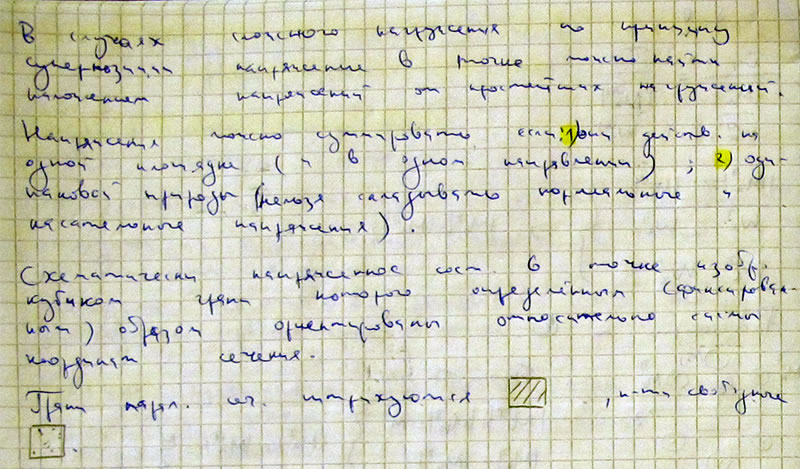 В случаях сложного нагружения по принципу
суперпозиции напряжение в точке можно найти
наложением напряжений от простейших нагружений.
Напряжения можно суммировать если: 1) они действ. на
одной площадке (и в одном направлении) ; 2) оди-
наковой природы (нельзя складывать нормальные и
касательные напряжения).
Схематически напряженное сост. в точке изобр.
кубиком грани которого определённым (фиксирован-
ным) образом ориентированы относительно сис-мы
координат сечения.
Грани штрихуются , свободные
.